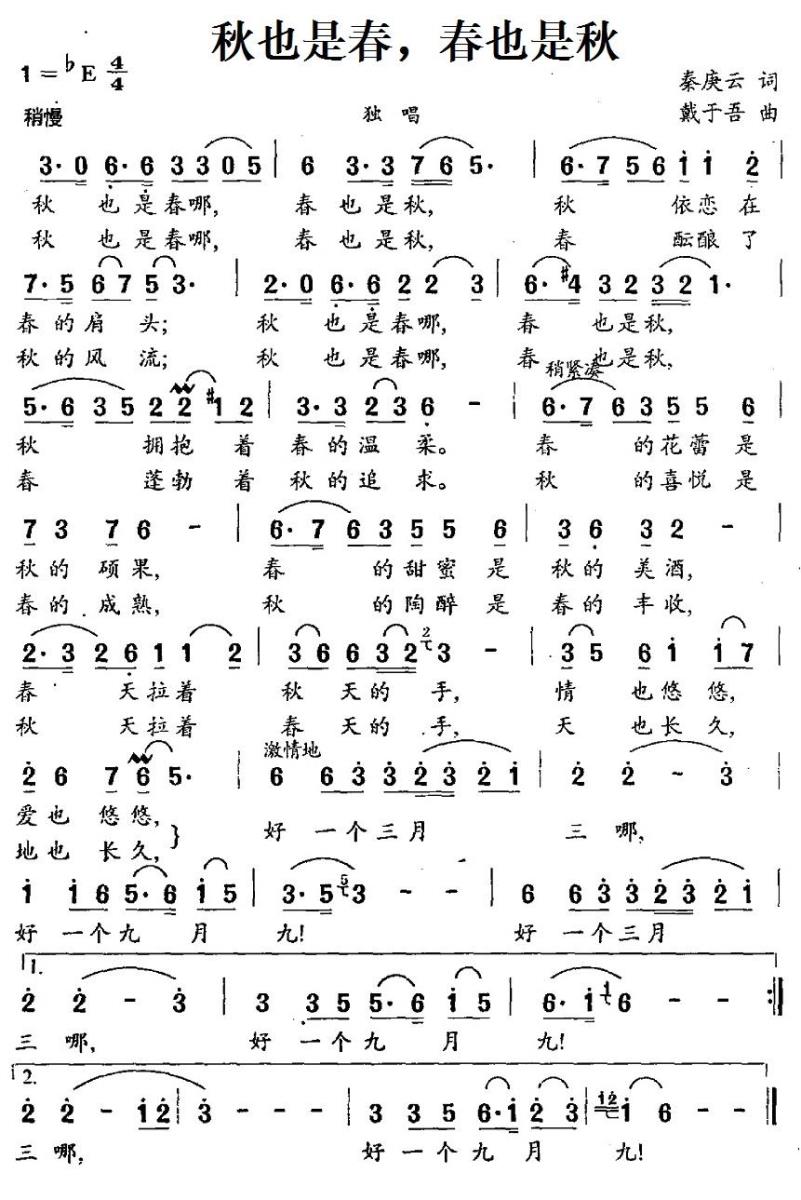 秋也是春，春也是秋
1=♭E 4/4
秦庚云 词
稍慢
独 唱
戴于吾 曲
3·0 6·6 3 3 0 5 | 6 3·3 7 6 5· | 6·7 5 6 1 1 2 |
秋 也是春哪， 春 也是秋， 秋 依恋在
秋 也是春哪， 春 也是秋， 春 酝酿了
7·5 6 7 5 3· | 2·0 6·6 2 2 3 | 6·#4 3 2 3 2 1· |
春的肩 头； 秋 也是春哪， 春 也是秋，
秋的风 流； 秋 也是春哪， 春 也是秋，
稍紧凑
5·6 3 5 2 2 #1 2 | 3·3 2 3 6 - | 6·7 6 3 5 5 6 |
秋 拥抱 着 春的温 柔。 春 的花蕾是
春 蓬勃 着 秋的追 求。 秋 的喜悦是
7 3 7 6 - | 6·7 6 3 5 5 6 | 3 6 3 2 - |
秋的 硕果， 春 的甜蜜是 秋的 美酒，
春的 成熟， 秋 的陶醉是 春的 丰收，
2·3 2 6 1 1 2 | 3 6 6 3 2 2 3 - | 3 5 6 1 1 7 |
春 天拉着 秋 天的 手， 情 也悠悠，
秋 天拉着 春 天的 手， 天 也长久，
激情地
2 6 7 6 5· | 6 6 3 3 2 3 2 1 | 2 2 - 3 |
爱也 悠悠，
地也 长久， } 好 一个三月 三哪，
1 1 6 5·6 1 5 | 3·5 5 3 - - | 6 6 3 3 2 3 2 1 |
好 一个九 月 九！ 好 一个三月
1.
2 2 - 3 | 3 3 5 5·6 1 5 | 6·1 1 6 - - :|
三 哪， 好 一个九 月 九！
2.
2 2 - 1 2 | 3 - - - | 3 3 5 6·1 2 3 | 1 2 1 6 - - |
三 哪， 好 一个九 月 九！